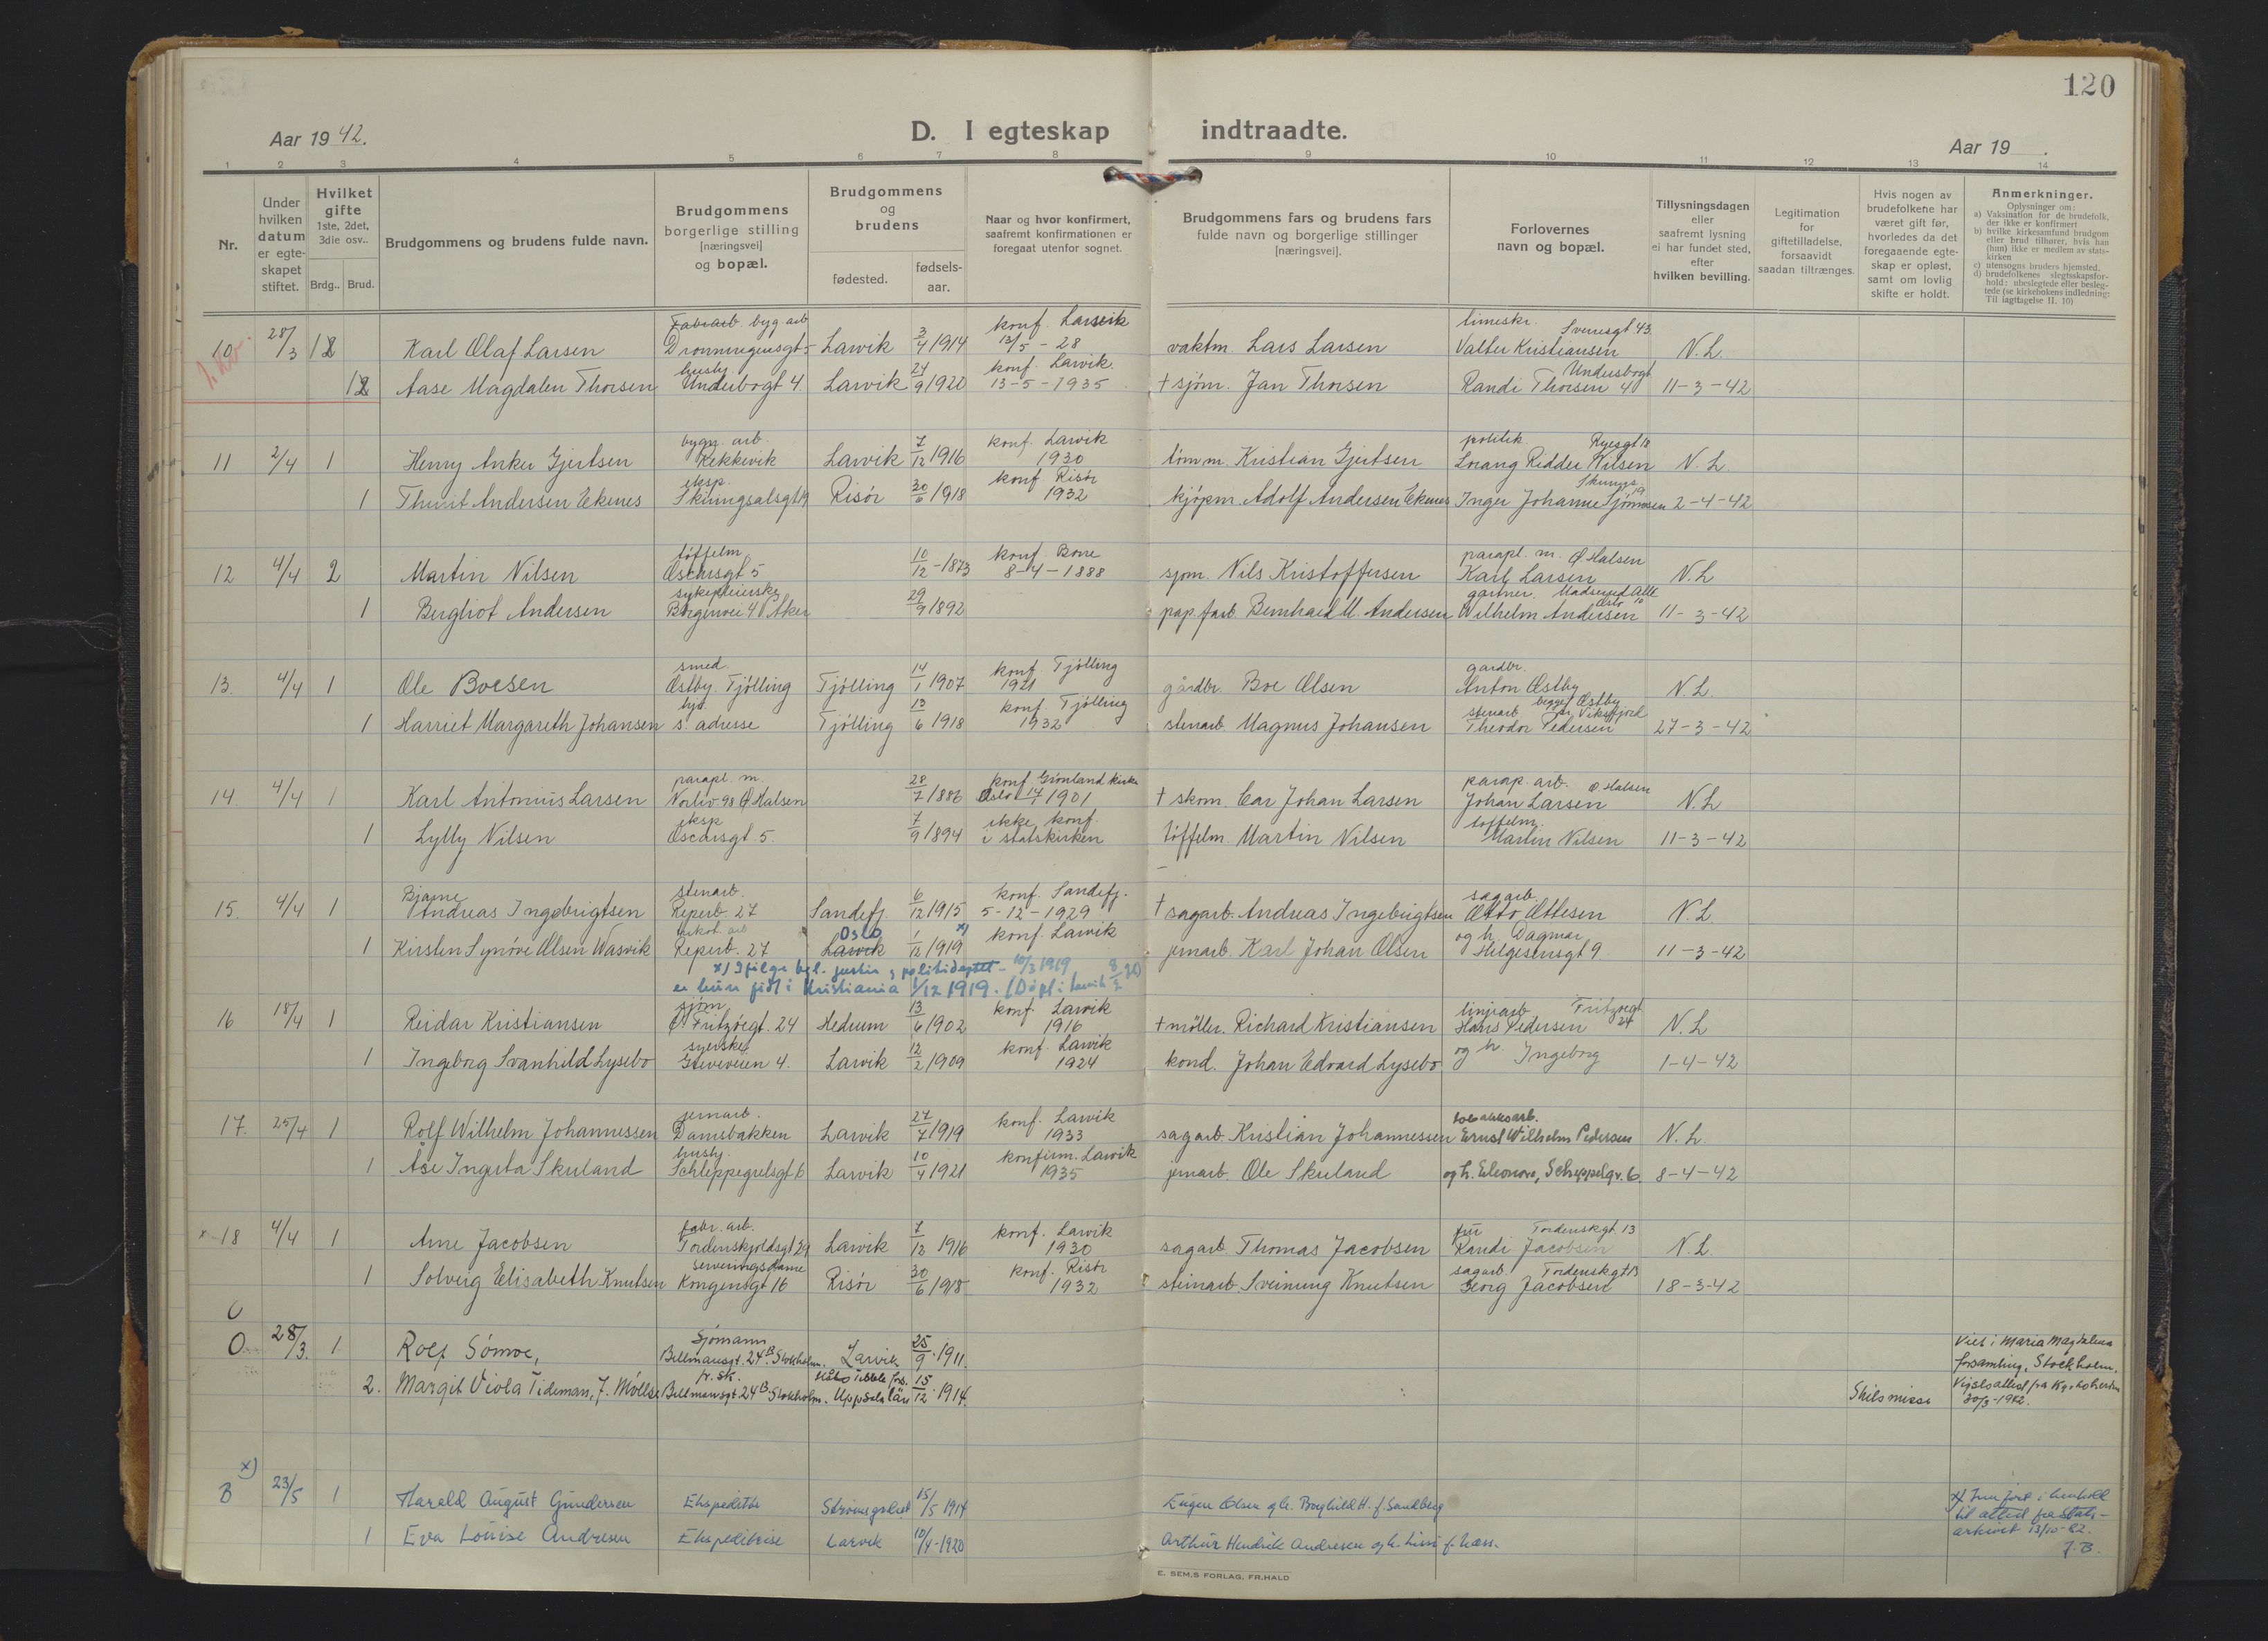 120
Aar 1942.
D. I egteskap indtraadte.
Aar 19 .
1 2 3 4 5 6 7 8 9 10 11 12 13 14
Nr.
Under hvilken datum er egte-skapet stiftet.
Hvilket gifte 1ste, 2det, 3die osv..
Brdg.. Brud.
Brudgommens og brudens fulde navn.
Brudgommens borgerlige stilling [næringsvei] og bopæl.
Brudgommens og brudens
fødested.
fødsels-aar.
Naar og hvor konfirmert, saafremt konfirmationen er foregaat utenfor sognet.
Brudgommens fars og brudens fars fulde navn og borgerlige stillinger [næringsvei].
Forlovernes navn og bopæl.
Tillysningsdagen eller saafremt lysning ei har fundet sted, efter hvilken bevilling.
Legitimation for giftetilladelse, forsaavidt saadan tiltrænges.
Hvis nogen av brudefolkene har været gift før, hvorledes da det foregaaende egte-skap er opløst, samt om lovlig skifte er holdt.
Anmerkninger.
Oplysninger om:
a) Vaksination for de brudefolk, der ikke er konfirmert
b) hvilke kirkesamfund brudgom eller brud tilhører, hvis han (hun) ikke er medlem av stats-kirken
c) utensogns bruders hjemsted.
d) brudefolkenes slegtsskapsfor-hold: ubeslegtede eller besleg-tede (se kirkebokens indledning: Til iagttagelse II. 10)
Fabrarb. byg. arb konf. Larvik timeskr. Sverresgt. 43.
10 28/3 1 Karl Olaf Larsen Dronningensgt 5 Larvik 3/4 1914 13/5 - 28 vaktm. Lars Larsen Valter Kristiansen N. L.
husbj. konf. Larvik. Undersbogt
1 Aase Magdalen Thorsen Undersbogt 4. Larvik 24/9 1920 13-5-1935 † sjøm. Jan Thorsen Randi Thorsen 40 11-3-42
bygn. arb. konf. Larvik politik. Ryesgt 18
11 2/4 1 Henry Anker Gjertsen Rekkevik Larvik 7/12 1916 1930 tømm. Kristian Gjertsen Lorang Ridder Nilsen N. L.
eksp. konf Risör Skirings. 19
1 Thurit Andersen Ekenes Skiringsalsgt 19 Risör 30/6 1918 1932 kjöpm. Adolf Andersen Ekenes Inger Johanne 2-4-42
töffelm. konf. Borre parapl. m. Ø Halsen
12 4/4 2 Martin Nilsen Oscarsgt 5 10/12 - 1873 8-4-1888 sjøm. Nils Kristoffersen Karl Larsen N. L
sykepleierske garmer. Madserud Alle Oslo 10
1 Bergliot Andersen Bergsvei 40 Aker 29/9 1892 pap. farb. Bernhard M. Andersen Wilhelm Andersen 11-3-42
smed. konf. Tjölling gardbr.
13. 4/4 1 Ole Boesen Østby. Tjölling Tjölling 14/1 1907 1921 gårdbr. Boe Olsen Anton Østby N. L.
hjd. konf. Tjölling begge Østby stenarb. Viksfjord
1 Harriet Margareth Johansen s. adresse Tjölling 13/6 1918 1932 stenarb. Magnus Johansen Theodor Pedersen 27-3-42
parapl. m. konf. Grönland kirke parap. arb. Ø. Halsen
14. 4/4 1 Karl Antonius Larsen Norliv. 98 Ø Halsen 28/7 1886 Oslo 14/4 1901 † skom. Car Johan Larsen Johan Larsen N. L
eksp ikke konf. töffelm.
1 Lylly Nilsen Oscarsgt. 5. 7/9 1894 i statskirken töffelm. Martin Nilsen Martin Nilsen 11-3-42
Bjarne stenarb. konf. Sandefj. sagarb.
15. 4/4 1 Andreas Ingebrigtsen Reperb. 27 Sandefj. 6/12 1915 5-12-1929 † sagarb. Andreas Ingebrigtsen Otto Ottesen N. L
Oslo x) konf. Larvik og h. Dagmar
1 Kirsten Synöve Olsen Wasvik Reperb. 27 Larvik 1/12 1919 jernarb. Karl Johan Olsen Helgesensgt 9 11-3-42
x) Ifölge bgl. justis og politideptet - 10/3 1919
er hun födt i Kristiania 1/12 1919.
sjöm. konf. Larvik linjearb Fritzöegt 24
16 18/4 1 Reidar Kristiansen Ø Fritzöegt. 24 Hedrum 13/6 1902 1916 † möller. Richard Kristiansen Hans Pedersen N. L
syerske konf. Larvik og h.
1 Ingeborg Svanhild Lysebo Greveveien 4. Larvik 12/2 1909 1924 kond. Johan Edvard Lysebo Ingeborg 1-4-42
jernarb. konf. Larvik tobakksarb.
17. 25/4 1 Rolf Wilhelm Johannessen Damsbakken Larvik 27/7 1919 1933 sagarb. Kristian Johannessen Ernst Wilhelm Pedersen N. L.
husbj. konfirm. Larvik
1 Åse Ingerta Skuland Schleppegrelsgt 6 Larvik 10/4 1921 1935 jernarb. Ole Skuland og h. Eleonora, Scheppelgr. 6. 8-4-42
fabr. arb. konf. Larvik fru Tordenskgt. 13
x-18 4/4 1 Arne Jacobsen Tordenskjoldsgt 29 Larvik 7/12 1916 1930 sagarb. Thomas Jacobsen Randi Jacobsen N. L.
Serveringsdame konf. Risör sagarb. Tordenskgt 13
1 Solveig Elisabeth Knutsen Kongensgt 16 Risör 30/6 1918 1932 steinarb. Sveinung Knutsen Georg Jacobsen 18-3-42
Sjömann Viet i Maria Magdalena
O 28/3. 1 Rolf Sömoe, Bellmansgt. 24B. Stockholm. Larvik 25/9 · 1911. forsamling, Stockholm.
fr. sk. Tibble fors.
2. Margit Viola Tideman, f. Möller Bellmansgt 24B Stockholm. Uppsala län 15/12 · 1914. Skilsmisse Vigselsattest fra Kyrkoherden 30/3-1942.
x)
B 23/5 1 Harald August Gundersen Ekspeditör 15/5 1914 Eugen Olsen og h. Borghild H. f. Sandberg x) Innfört i henhold til attest fra Stats-arkivet 13/10-82. J. B.
1 Eva Louise Andresen Ekspeditrise Larvik 10/4-1920 Arthur Hendrik Andresen og h. Lissi f. Næss.
E. SEM.S FORLAG, FR.HALD